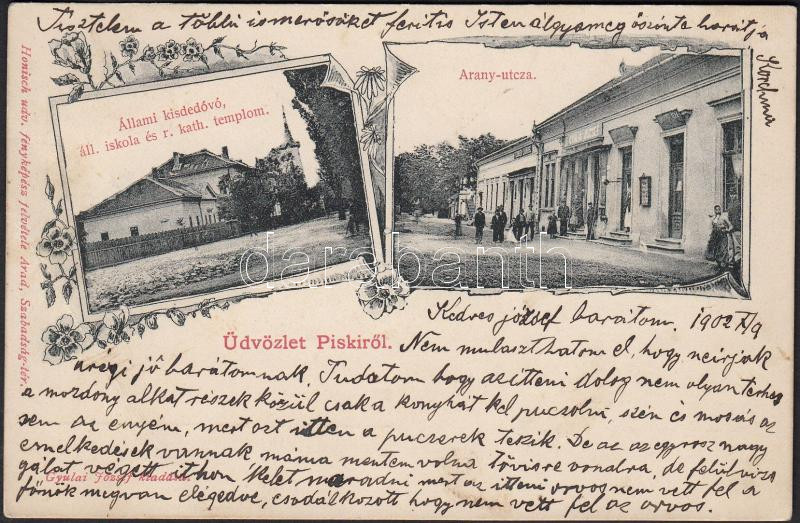 Tisztelem a többi ismerősöket is Isten álgyameg őszinte barátja
Korchma
Állami kisdedóvó,
áll. iskola és r. kath. templom.
Arany-utcza.
Honisch udv. fényképész felvétele Arad, Szabadság-tér.
darabanth
Üdvözlet Piskiről.
Kedves józsef barátom. 1902 /9
Nem mulaszthatom el, hogy neirjak
régi jó barátomnak. Tudatom hogy azitteni dolog nem olyan terhes
a mozdony alkat részek közül csak a konyhát kel pucsolni, szén és mosás az
sem az enyém, mert azt itten a puczerek teszik. De az az egy rosz nagy
emelkedések vannak máma mentem volna tövisre vonalra, de felül vizs
gálat végett ithon kelet maradni mert az itteni orvos nem vett fel a
főnök megvan elégedve, csodálkozott hogy nem vett fel az orvos.
Gyulai József kiadása.